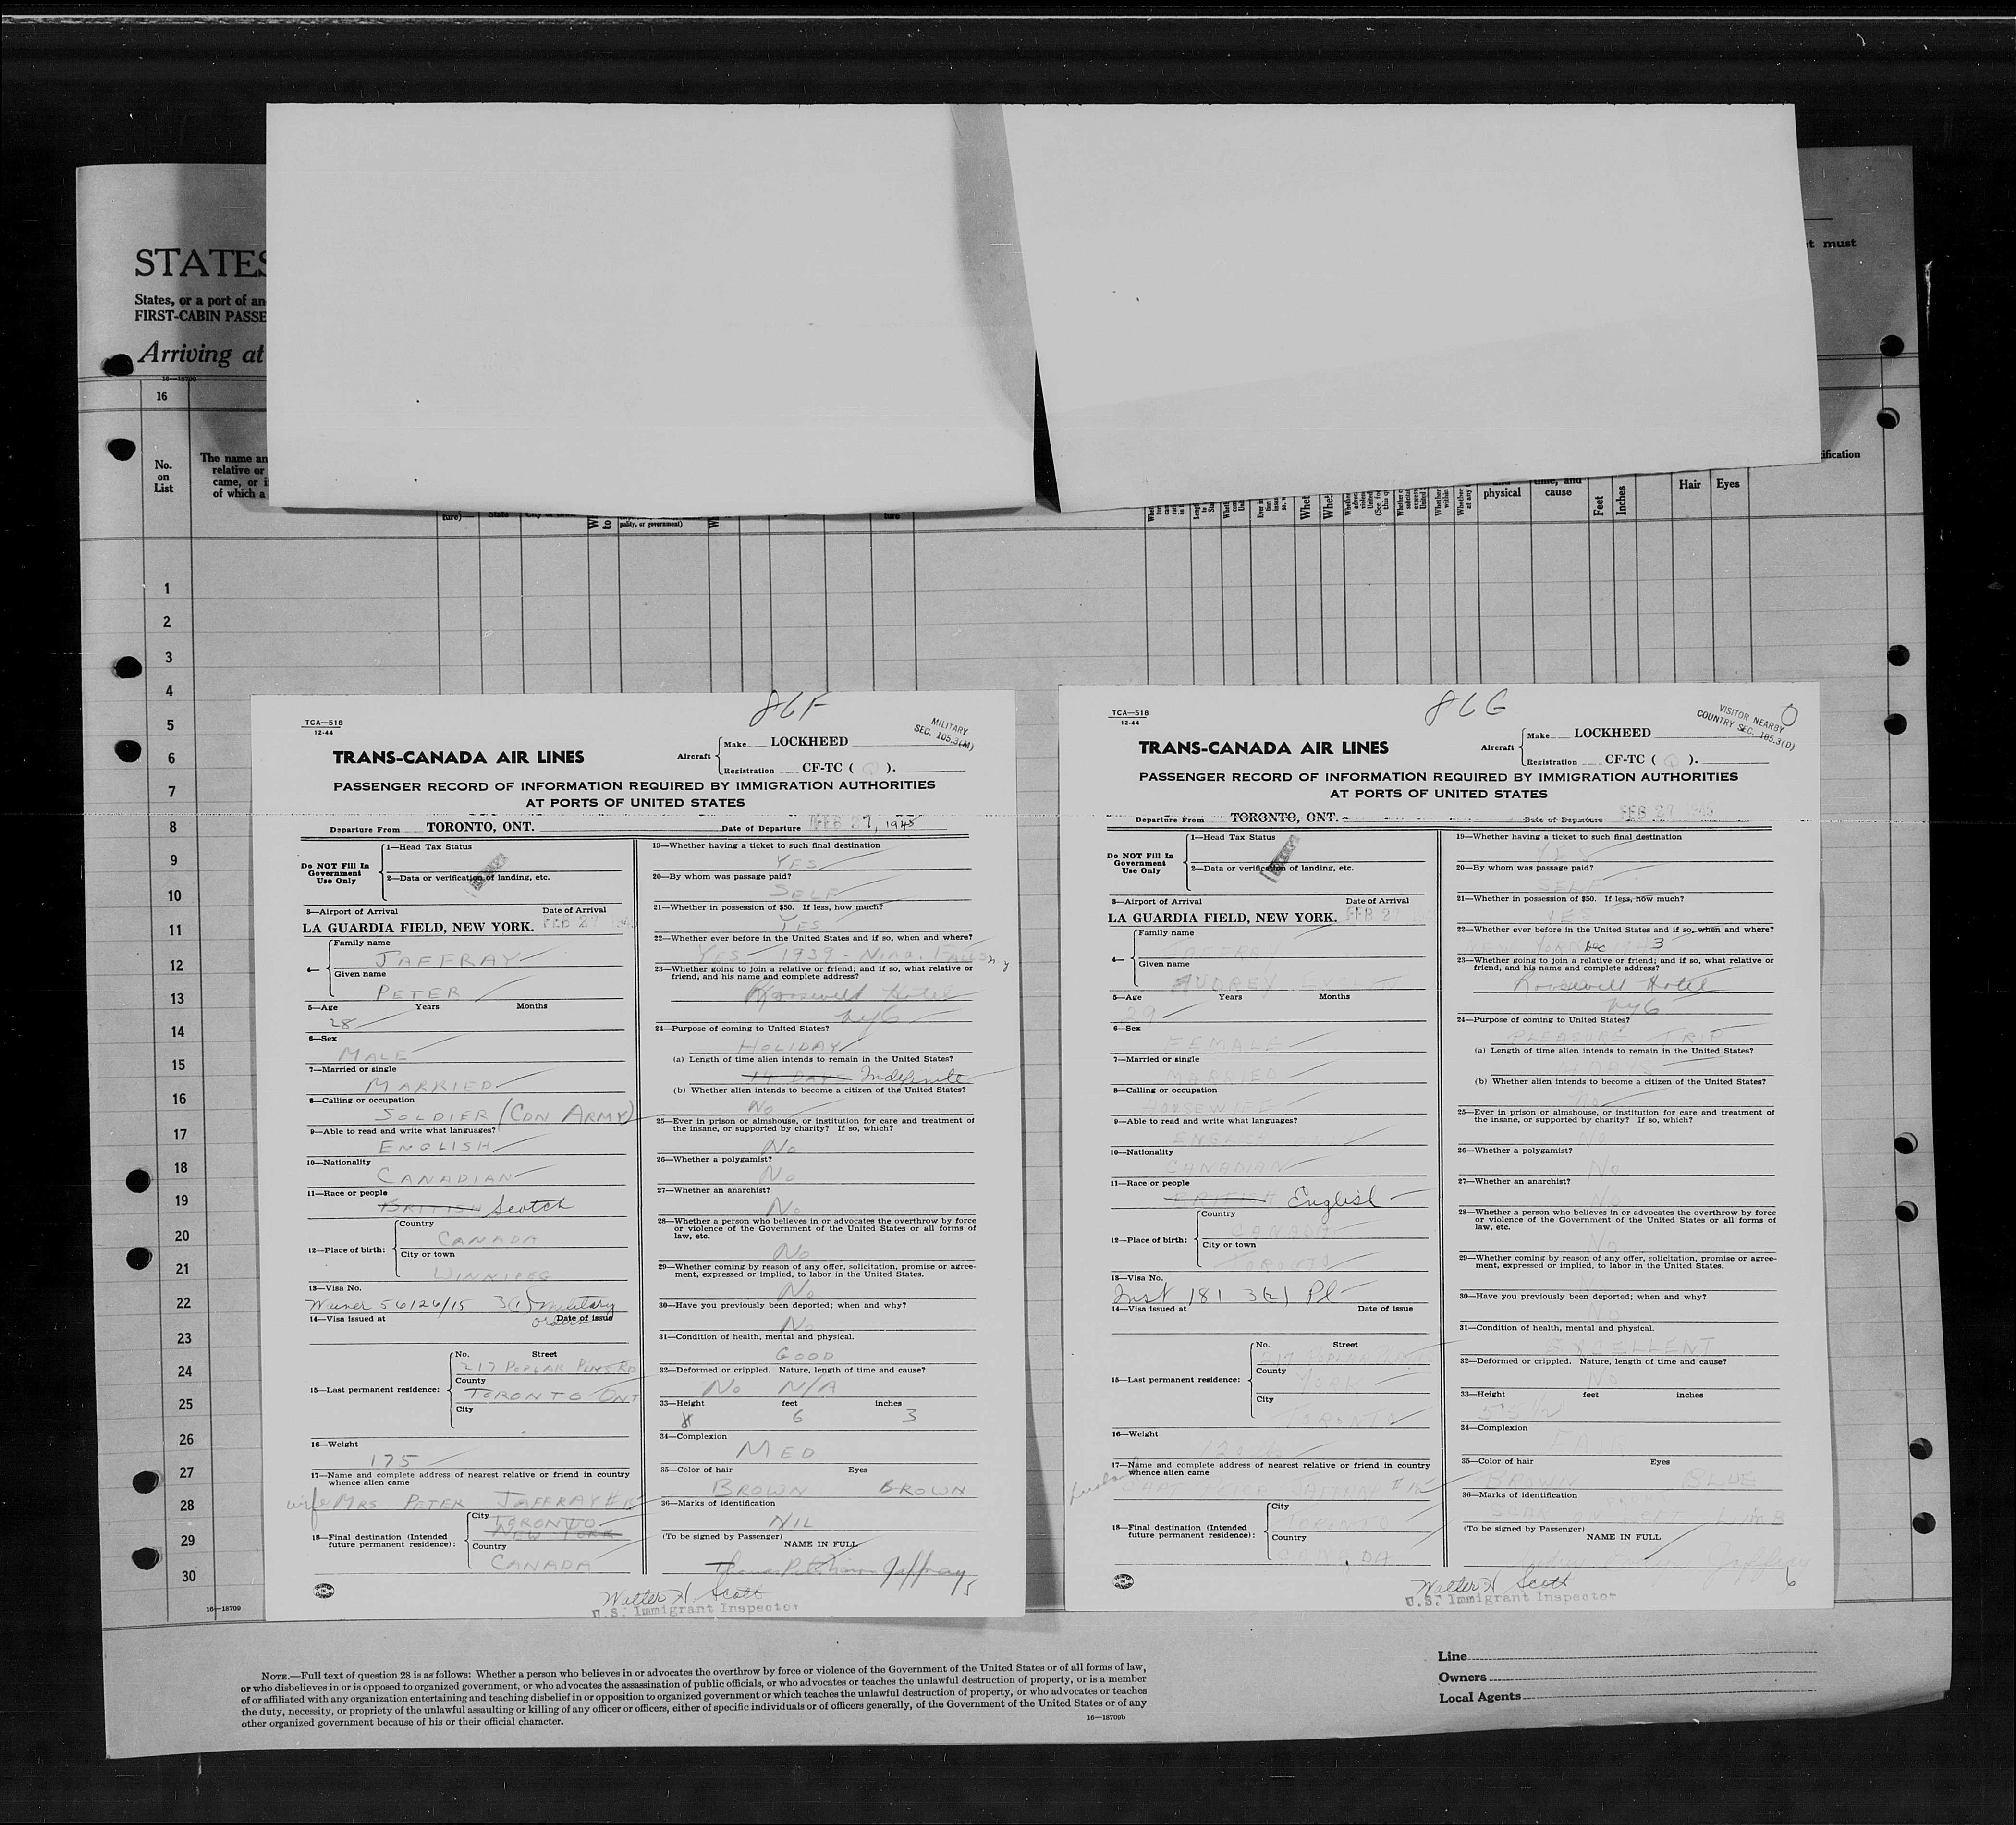 STATES
States, or a port of an
FIRST-CABIN PASSE
Arriving at
t must
16—18709
16
No.
on
List
The name an
relative or
came, or i
of which a
ification
ture)—
State
pality, or government)
ture
physical
time, and
cause
Feet
Inches
Hair
Eyes
1
2
3
4
5
6
7
8
9
10
11
12
13
14
15
16
17
18
19
20
21
22
23
24
25
26
27
28
29
30
16—18709
86F
TCA—518
12-44
MILITARY
SEC. 105.3(M)
TRANS-CANADA AIR LINES
Aircraft
Make LOCKHEED
Registration CF-TC ( Q ).
PASSENGER RECORD OF INFORMATION REQUIRED BY IMMIGRATION AUTHORITIES
AT PORTS OF UNITED STATES
Departure From TORONTO, ONT. Date of Departure FEB 27, 1945
Do NOT Fill In
Government
Use Only
1—Head Tax Status
2—Data or verification of landing, etc.
3—Airport of Arrival Date of Arrival
LA GUARDIA FIELD, NEW YORK. FEB 27 1945
4—
Family name
JAFFRAY
Given name
PETER
5—Age Years Months
28
6—Sex
MALE
7—Married or single
MARRIED
8—Calling or occupation
SOLDIER (CDN ARMY)
9—Able to read and write what languages?
ENGLISH
10—Nationality
CANADIAN
11—Race or people
BRITISH Scotch
12—Place of birth:
Country
CANADA
City or town
WINNIPEG
13—Visa No.
Waiver 56126/15 3(1) Military
orders
14—Visa issued at Date of issue
15—Last permanent residence:
No. Street
217 POPLAR PLNS RD
County
TORONTO ONT
City
16—Weight
175
17—Name and complete address of nearest relative or friend in country
whence alien came
wife MRS PETER JAFFRAY #15
18—Final destination (Intended
future permanent residence):
City TORONTO
NEW YORK
Country
CANADA
19—Whether having a ticket to such final destination
YES
20—By whom was passage paid?
SELF
21—Whether in possession of $50. If less, how much?
YES
22—Whether ever before in the United States and if so, when and where?
YES - 1939 - NIAG. FALLS N.Y
23—Whether going to join a relative or friend; and if so, what relative or
friend, and his name and complete address?
Roosevelt Hotel
NYC
24—Purpose of coming to United States?
HOLIDAY
(a) Length of time alien intends to remain in the United States?
14 DAYS Indefinite
(b) Whether alien intends to become a citizen of the United States?
No
25—Ever in prison or almshouse, or institution for care and treatment of
the insane, or supported by charity? If so, which?
No
26—Whether a polygamist?
No
27—Whether an anarchist?
No
28—Whether a person who believes in or advocates the overthrow by force
or violence of the Government of the United States or all forms of
law, etc.
No
29—Whether coming by reason of any offer, solicitation, promise or agree-
ment, expressed or implied, to labor in the United States.
No
30—Have you previously been deported; when and why?
No
31—Condition of health, mental and physical.
GOOD
32—Deformed or crippled. Nature, length of time and cause?
No N/A
33—Height feet inches
6 3
34—Complexion
MED
35—Color of hair Eyes
BROWN BROWN
36—Marks of identification
NIL
(To be signed by Passenger)
NAME IN FULL
Jaffray
5
Walter H Scott
U.S. Immigrant Inspector
86G
TCA—518
12-44
VISITOR NEARBY
COUNTRY SEC. 105.3(D)
TRANS-CANADA AIR LINES
Aircraft
Make LOCKHEED
Registration CF-TC ( Q ).
PASSENGER RECORD OF INFORMATION REQUIRED BY IMMIGRATION AUTHORITIES
AT PORTS OF UNITED STATES
Departure From TORONTO, ONT. Date of Departure FEB 27 1945
Do NOT Fill In
Government
Use Only
1—Head Tax Status
2—Data or verification of landing, etc.
3—Airport of Arrival Date of Arrival
LA GUARDIA FIELD, NEW YORK. FEB 27
4—
Family name
JAFFRAY
Given name
AUDREY
5—Age Years Months
29
6—Sex
FEMALE
7—Married or single
MARRIED
8—Calling or occupation
HOUSEWIFE
9—Able to read and write what languages?
ENGLISH
10—Nationality
CANADIAN
11—Race or people
BRITISH English
12—Place of birth:
Country
CANADA
City or town
TORONTO
13—Visa No.
Inst 181 3(2) Pl
14—Visa issued at Date of issue
15—Last permanent residence:
No. Street
217 POPLAR
County
YORK
City
TORONTO
16—Weight
17—Name and complete address of nearest relative or friend in country
whence alien came
CAPT PETER JAFFRAY #15
18—Final destination (Intended
future permanent residence):
City
TORONTO
Country
CANADA
19—Whether having a ticket to such final destination
YES
20—By whom was passage paid?
SELF
21—Whether in possession of $50. If less, how much?
YES
22—Whether ever before in the United States and if so, when and where?
YORK Dec 1943
23—Whether going to join a relative or friend; and if so, what relative or
friend, and his name and complete address?
Roosevelt Hotel
NYC
24—Purpose of coming to United States?
PLEASURE TRIP
(a) Length of time alien intends to remain in the United States?
DAYS
(b) Whether alien intends to become a citizen of the United States?
No
25—Ever in prison or almshouse, or institution for care and treatment of
the insane, or supported by charity? If so, which?
No
26—Whether a polygamist?
No
27—Whether an anarchist?
No
28—Whether a person who believes in or advocates the overthrow by force
or violence of the Government of the United States or all forms of
law, etc.
No
29—Whether coming by reason of any offer, solicitation, promise or agree-
ment, expressed or implied, to labor in the United States.
30—Have you previously been deported; when and why?
No
31—Condition of health, mental and physical.
EXCELLENT
32—Deformed or crippled. Nature, length of time and cause?
No
33—Height feet inches
5'5 1/2
34—Complexion
FAIR
35—Color of hair Eyes
BROWN BLUE
36—Marks of identification
SCAR ON LEFT
(To be signed by Passenger)
NAME IN FULL
6
Walter H Scott
U.S. Immigrant Inspector
NOTE.—Full text of question 28 is as follows: Whether a person who believes in or advocates the overthrow by force or violence of the Government of the United States or of all forms of law,
or who disbelieves in or is opposed to organized government, or who advocates the assassination of public officials, or who advocates or teaches the unlawful destruction of property, or is a member
of or affiliated with any organization entertaining and teaching disbelief in or opposition to organized government or which teaches the unlawful destruction of property, or who advocates or teaches
the duty, necessity, or propriety of the unlawful assaulting or killing of any officer or officers, either of specific individuals or of officers generally, of the Government of the United States or of any
other organized government because of his or their official character.
16—18709b
Line
Owners
Local Agents